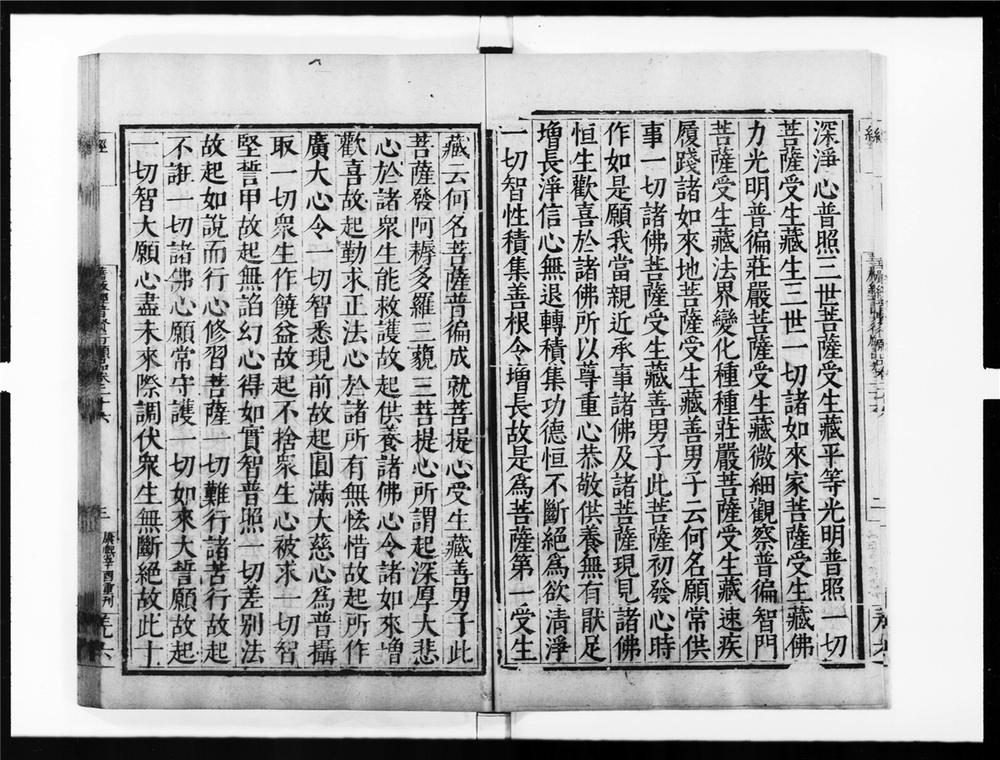 深淨心普照三世菩薩受生藏平等光明普照一切
菩薩受生藏生三世一切諸如來家菩薩受生藏佛
力光明普徧莊嚴菩薩受生藏微細觀察普徧智門
菩薩受生藏法界變化種種莊嚴菩薩受生藏速疾
履踐諸如來地菩薩受生藏善男子云何名願常供
事一切諸佛菩薩受生藏善男子此菩薩初發心時
作如是願我當親近承事諸佛及諸菩薩現見諸佛
恒生歡喜於諸佛所以尊重心恭敬供養無有猒足
增長淨信心無退轉積集功德恒不斷絕為欲淸淨
一切智性積集善根令增長故是為菩薩第一受生
藏云何名菩薩普徧成就菩提心受生藏善男子此
菩薩發阿耨多羅三藐三菩提心所謂起深厚大悲
心於諸衆生能救護故起供養諸佛心令諸如來增
歡喜故起勤求正法心於諸所有無恡惜故起所作
廣大心令一切智悉現前故起圓滿大慈心為普攝
取一切衆生作饒益故起不捨衆生心被求一切智
堅誓甲故起無諂幻心得如實智普照一切差別法
故起如說而行心修習菩薩一切難行諸苦行故起
不誑一切諸佛心願常守護一切如來大誓願故起
一切智大願心盡未來際調伏衆生無斷絕故此十
經
三
康熙辛酉重刊